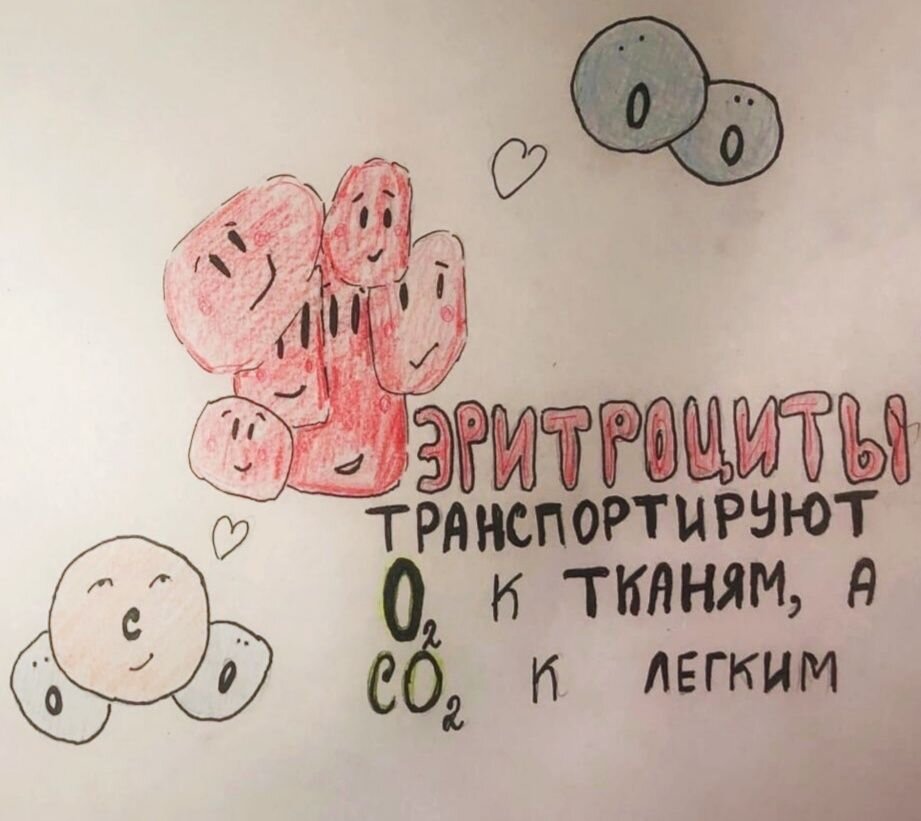 О
О
ЭРИТРОЦИТЫ
ТРАНСПОРТИРУЮТ
О₂ К ТКАНЯМ, А
СО₂ К ЛЕГКИМ
С
О
О